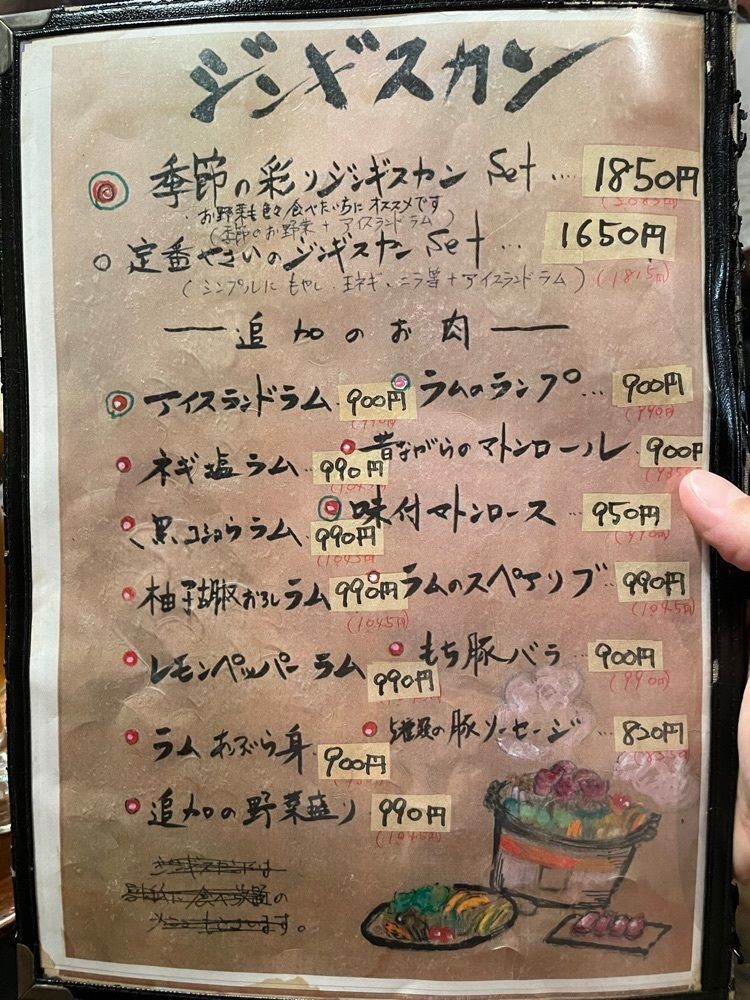 ジンギスカン
季節の彩りジンギスカン Set .... 1850円
・お野菜も色々食べたい方にオススメです
(季節のお野菜 + アイスランドラム)
定番やさいのジンギスカン Set ... 1650円
(1815円)
(シンプルに もやし、玉ネギ、ニラ等 + アイスランドラム)
追加のお肉
アイスランドラム 900円
ラムのランプ... 900円
ネギ塩ラム 990円
昔ながらのマトンロール 900円
黒コショウラム 990円
(1045円)
味付マトンロース 950円
柚子胡椒おろしラム 990円
(1045円)
ラムのスペアリブ 990円
(1045円)
レモンペッパーラム 990円
もち豚バラ .. 900円
(990円)
ラムあぶら身 900円
5種類の豚ソーセージ .. 830円
追加の野菜盛り 990円
(1045円)
ジンギスカンは